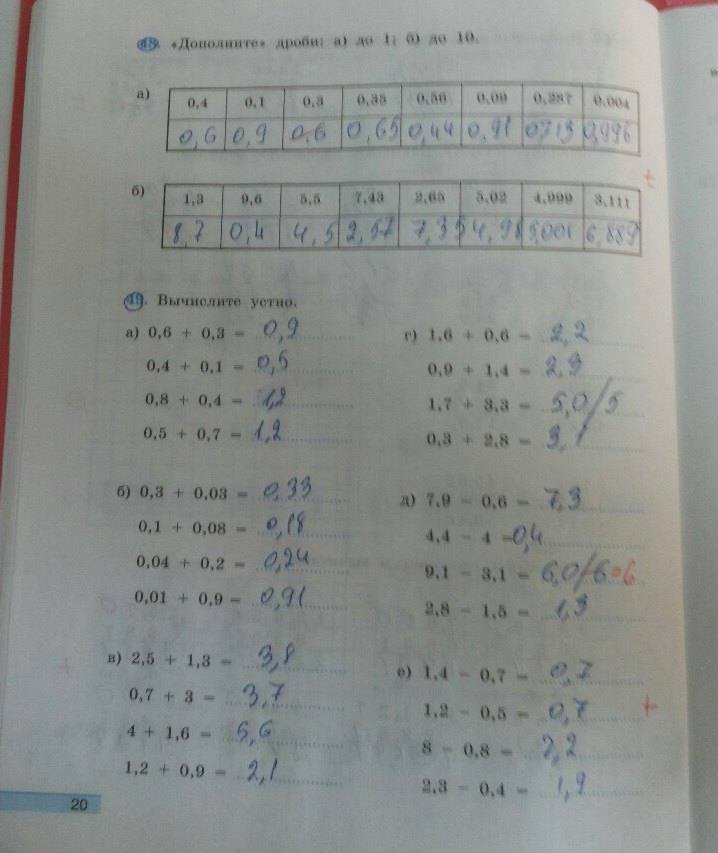 48. «Дополните» дроби: а) до 1; б) до 10.
а)
0,4 0,1 0,3 0,35 0,56 0,09 0,287 0,004
0,6 0,9 0,6 0,65 0,44 0,91 0,713 0,996
+
б)
1,3 9,6 5,5 7,43 2,65 5,02 4,999 3,111
8,7 0,4 4,5 2,57 7,35 4,98 5,001 6,889
49. Вычислите устно.
а) 0,6 + 0,3 = 0,9
0,4 + 0,1 = 0,5
0,8 + 0,4 = 1,2
0,5 + 0,7 = 1,2
б) 0,3 + 0,03 = 0,33
0,1 + 0,08 = 0,18
0,04 + 0,2 = 0,24
0,01 + 0,9 = 0,91
+ в) 2,5 + 1,3 = 3,8
0,7 + 3 = 3,7
4 + 1,6 = 5,6
1,2 + 0,9 = 2,1
г) 1,6 + 0,6 = 2,2
0,9 + 1,4 = 2,3
1,7 + 3,3 = 5,0/5
0,3 + 2,8 = 3,1
д) 7,9 − 0,6 = 7,3
4,4 − 4 = 0,4
9,1 − 3,1 = 6,0/6=6
2,8 − 1,5 = 1,3
е) 1,4 − 0,7 = 0,7
1,2 − 0,5 = 0,7 +
8 − 0,8 = 7,2
2,3 − 0,4 = 1,9
20